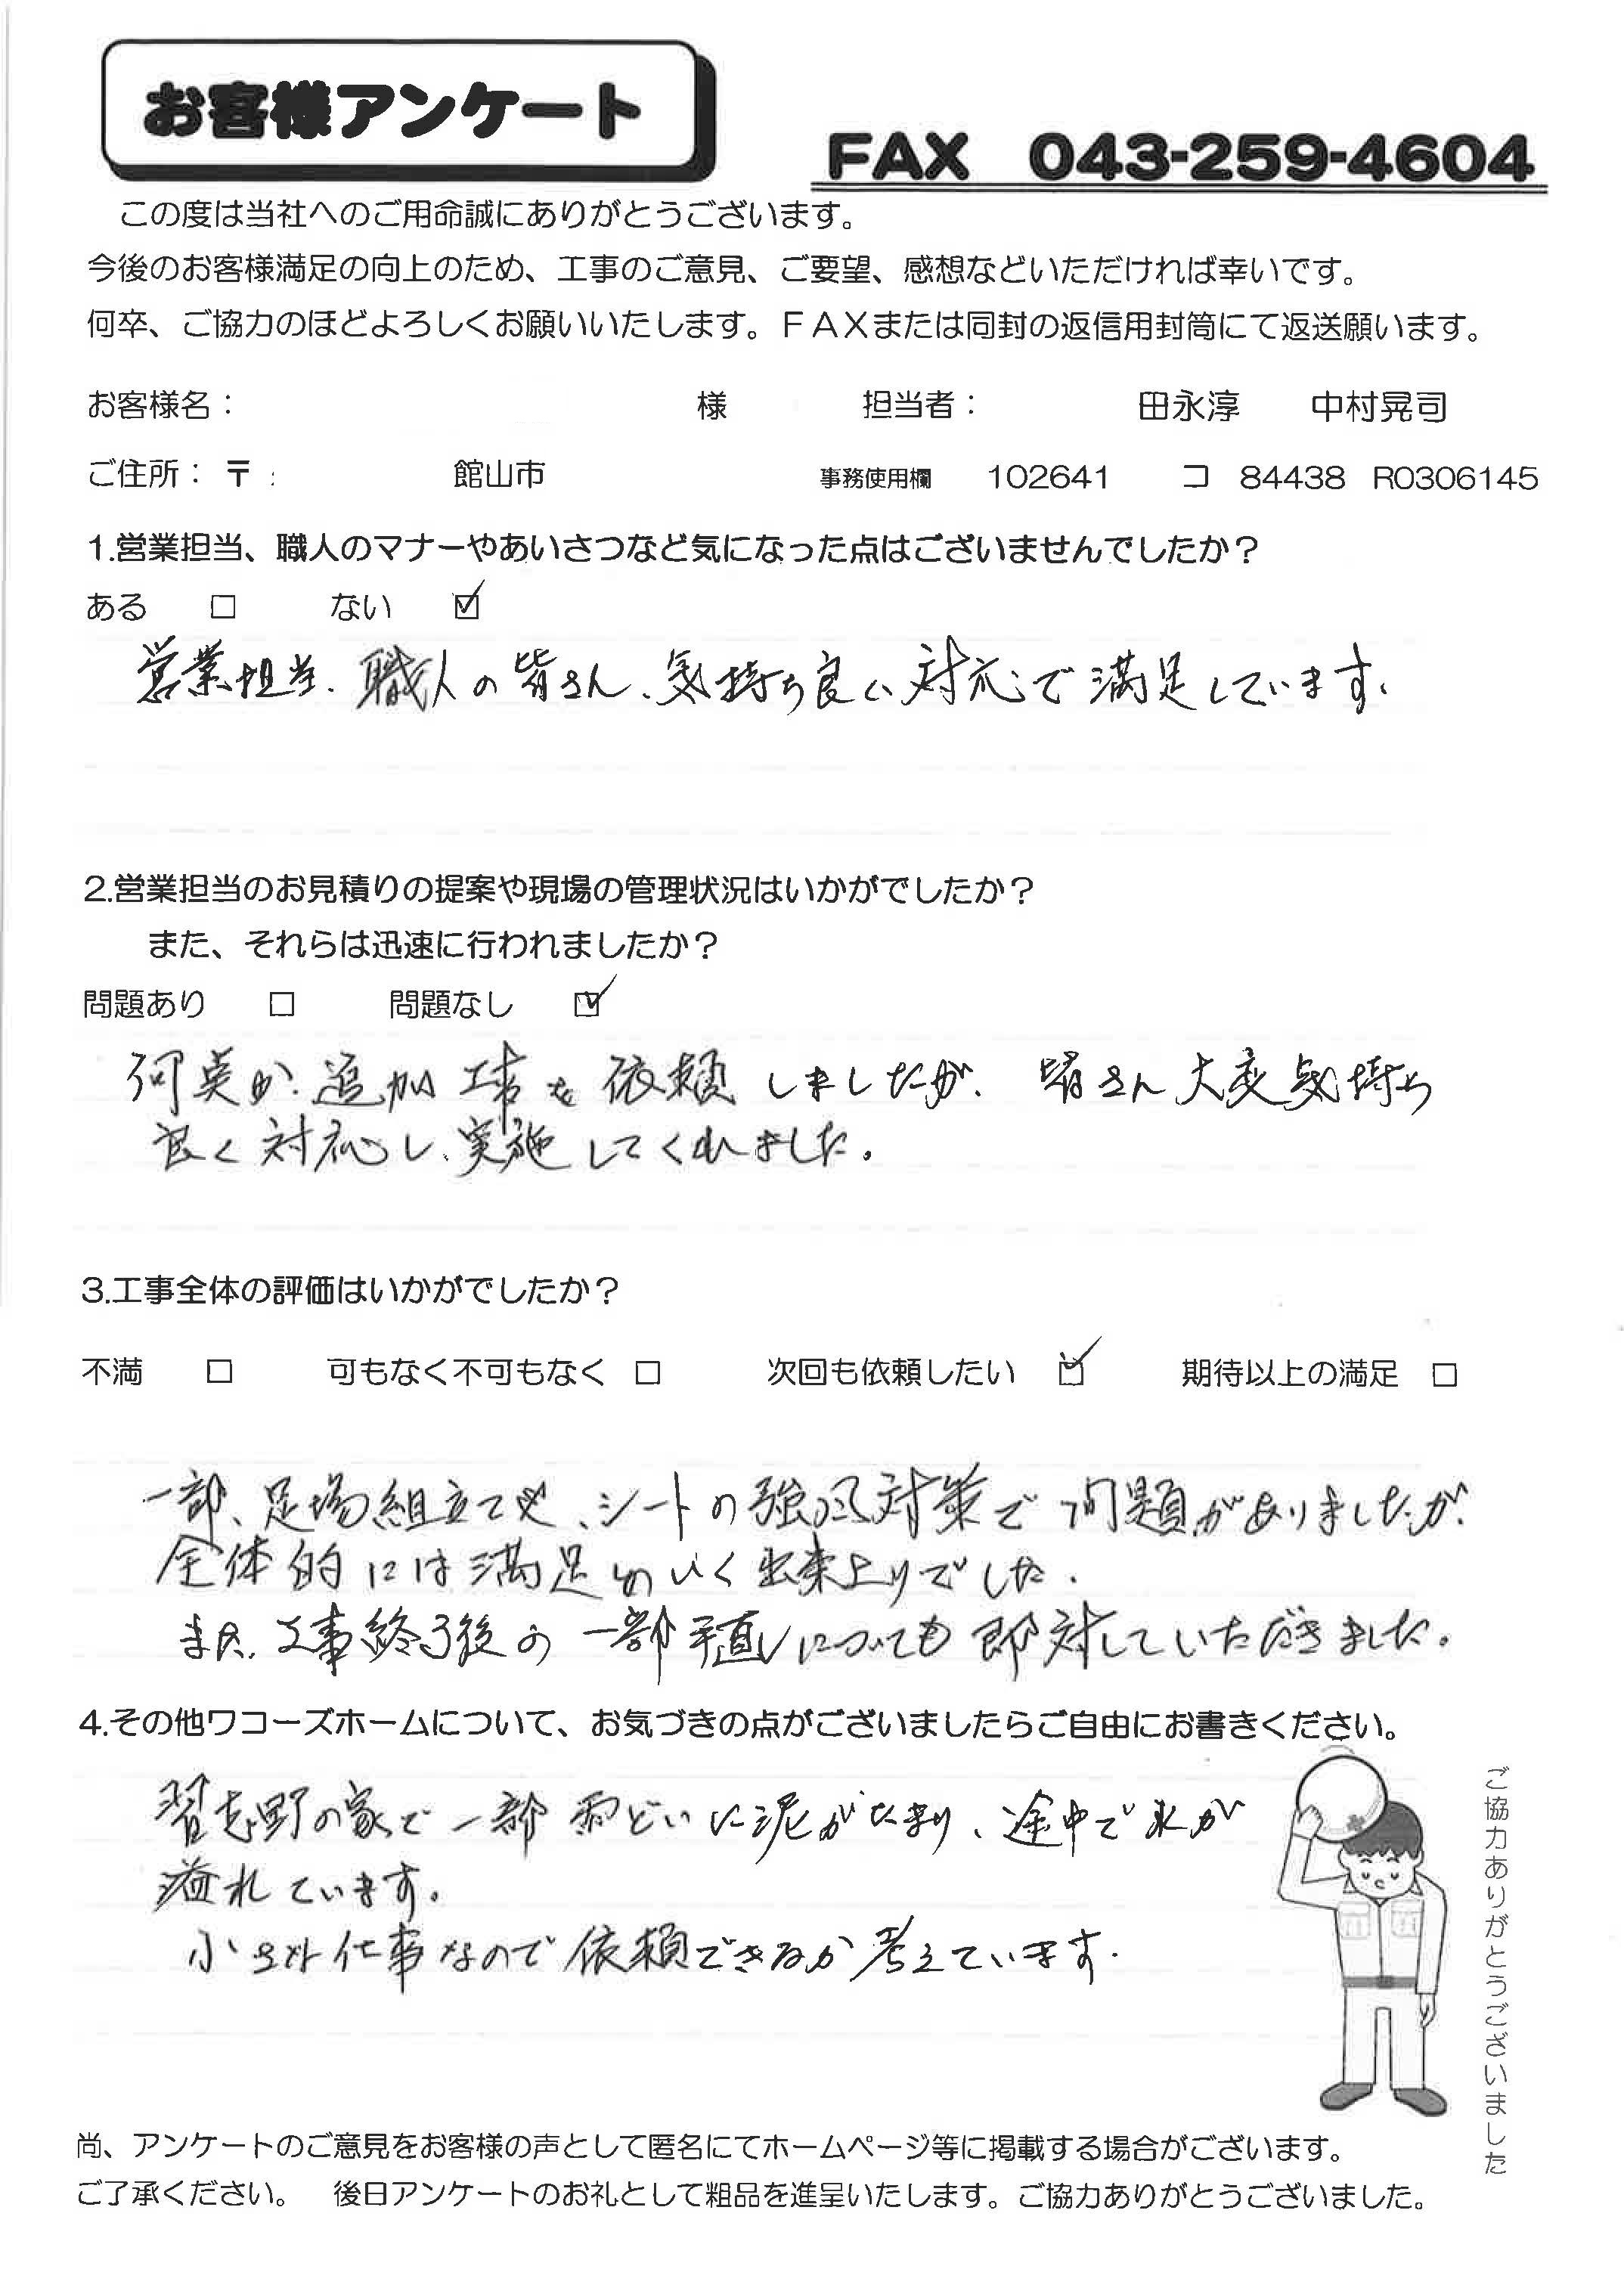 お客様アンケート
FAX 043-259-4604
この度は当社へのご用命誠にありがとうございます。
今後のお客様満足の向上のため、工事のご意見、ご要望、感想などいただければ幸いです。
何卒、ご協力のほどよろしくお願いいたします。FAXまたは同封の返信用封筒にて返送願います。
お客様名： 様 担当者： 田永淳 中村晃司
ご住所：〒： 館山市 事務使用欄 102641 コ 84438 R0306145
1.営業担当、職人のマナーやあいさつなど気になった点はございませんでしたか？
ある □ ない ☑
営業担当、職人の皆さん、気持ち良い対応で満足しています。
2.営業担当のお見積りの提案や現場の管理状況はいかがでしたか？
また、それらは迅速に行われましたか？
問題あり □ 問題なし ☑
何点か、追加工事を依頼しましたが、皆さん大変気持ち
良く対応し、実施してくれました。
3.工事全体の評価はいかがでしたか？
不満 □ 可もなく不可もなく □ 次回も依頼したい ☑ 期待以上の満足 □
一部、足場組立てや、シートの強風対策で問題がありましたが、
全体的には満足のいく出来上りでした。
また、工事終了後の一部手直しについても即対していただきました。
4.その他ワコーズホームについて、お気づきの点がございましたらご自由にお書きください。
習志野の家で一部雨どいに泥がたまり、途中で水が
溢れています。
小さな仕事なので依頼できるか考えています。
ご協力ありがとうございました
尚、アンケートのご意見をお客様の声として匿名にてホームページ等に掲載する場合がございます。
ご了承ください。 後日アンケートのお礼として粗品を進呈いたします。ご協力ありがとうございました。